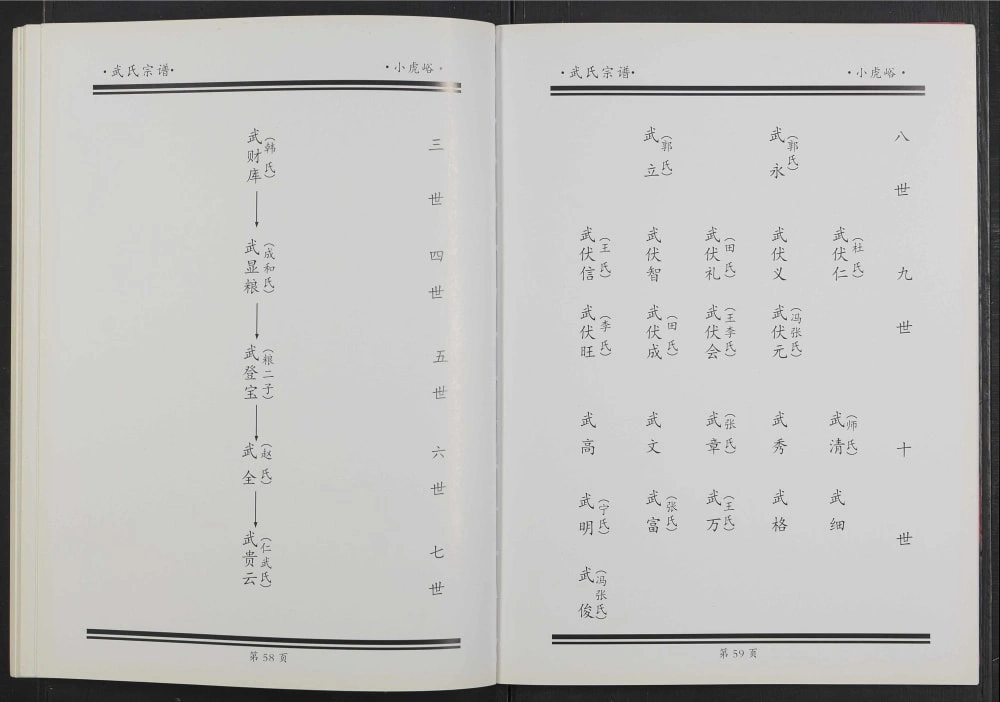 ·武氏宗谱·
·小虎峪·
三世
武财库(韩氏)
四世
武显粮(成和氏)
五世
武登宝(粮二子)
六世
武全(赵氏)
七世
武贵云(仁武氏)
第58页
·武氏宗谱·
·小虎峪·
八世
武永(郭氏)
武立(郭氏)
九世
武伏仁(杜氏)
武伏义
武伏礼(田氏)
武伏智
武伏信(王氏)
武伏元(冯张氏)
武伏会(王李氏)
武伏成(田氏)
武伏旺(李氏)
十世
武清(师氏)
武秀
武章(张氏)
武文
武高
武细
武格
武万(王氏)
武富(张氏)
武明(宁氏)
武俊(冯张氏)
第59页